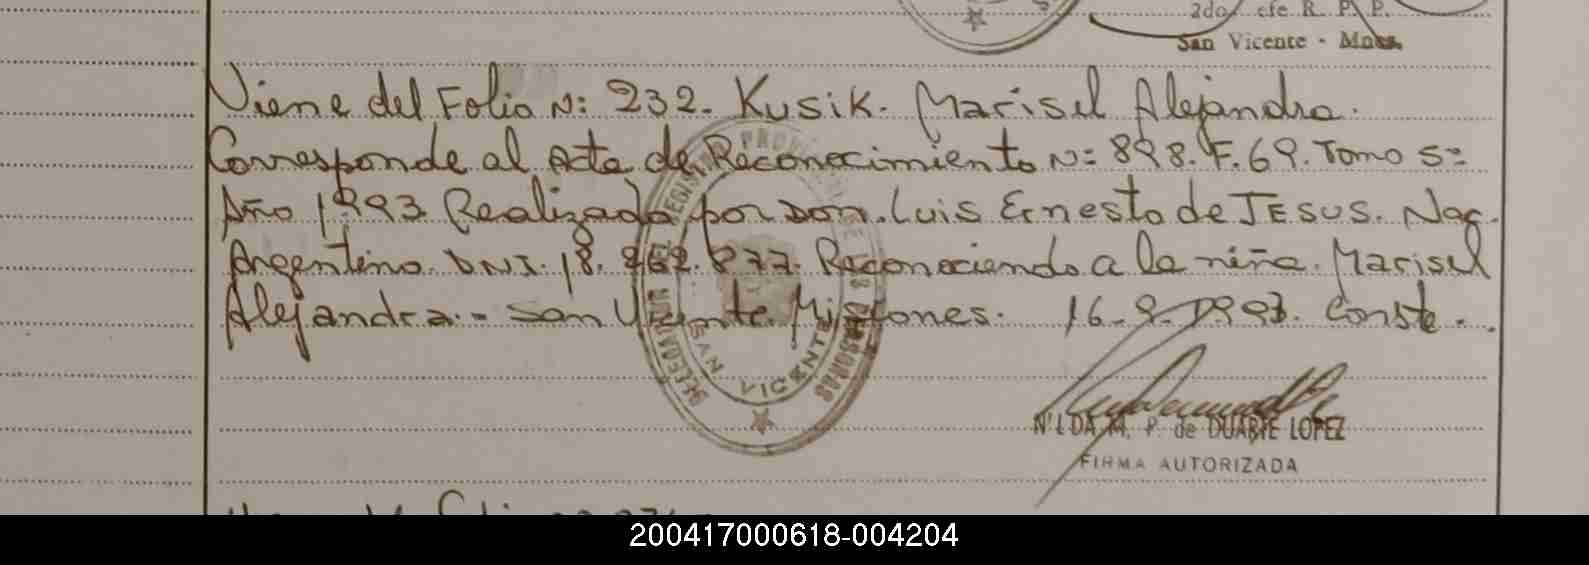 2do Jefe R. P. P.
San Vicente - Mnes.
Viene del Folio N: 232. Kusik. Marisel Alejandra.
Corresponde al Acta de Reconocimiento N: 898. F. 69. Tomo 5º
Año 1993 Realizada por Don. Luis Ernesto de JESUS. Nac.
Argentino. DNI. 18. 262. 877. Reconociendo a la niña. Marisel
Alejandra.- San Vicente. Misiones. 16-9-1993. Conste.
SAN VICENTE
N'LDA M. P. de DUARTE LOPEZ
FIRMA AUTORIZADA
200417000618-004204